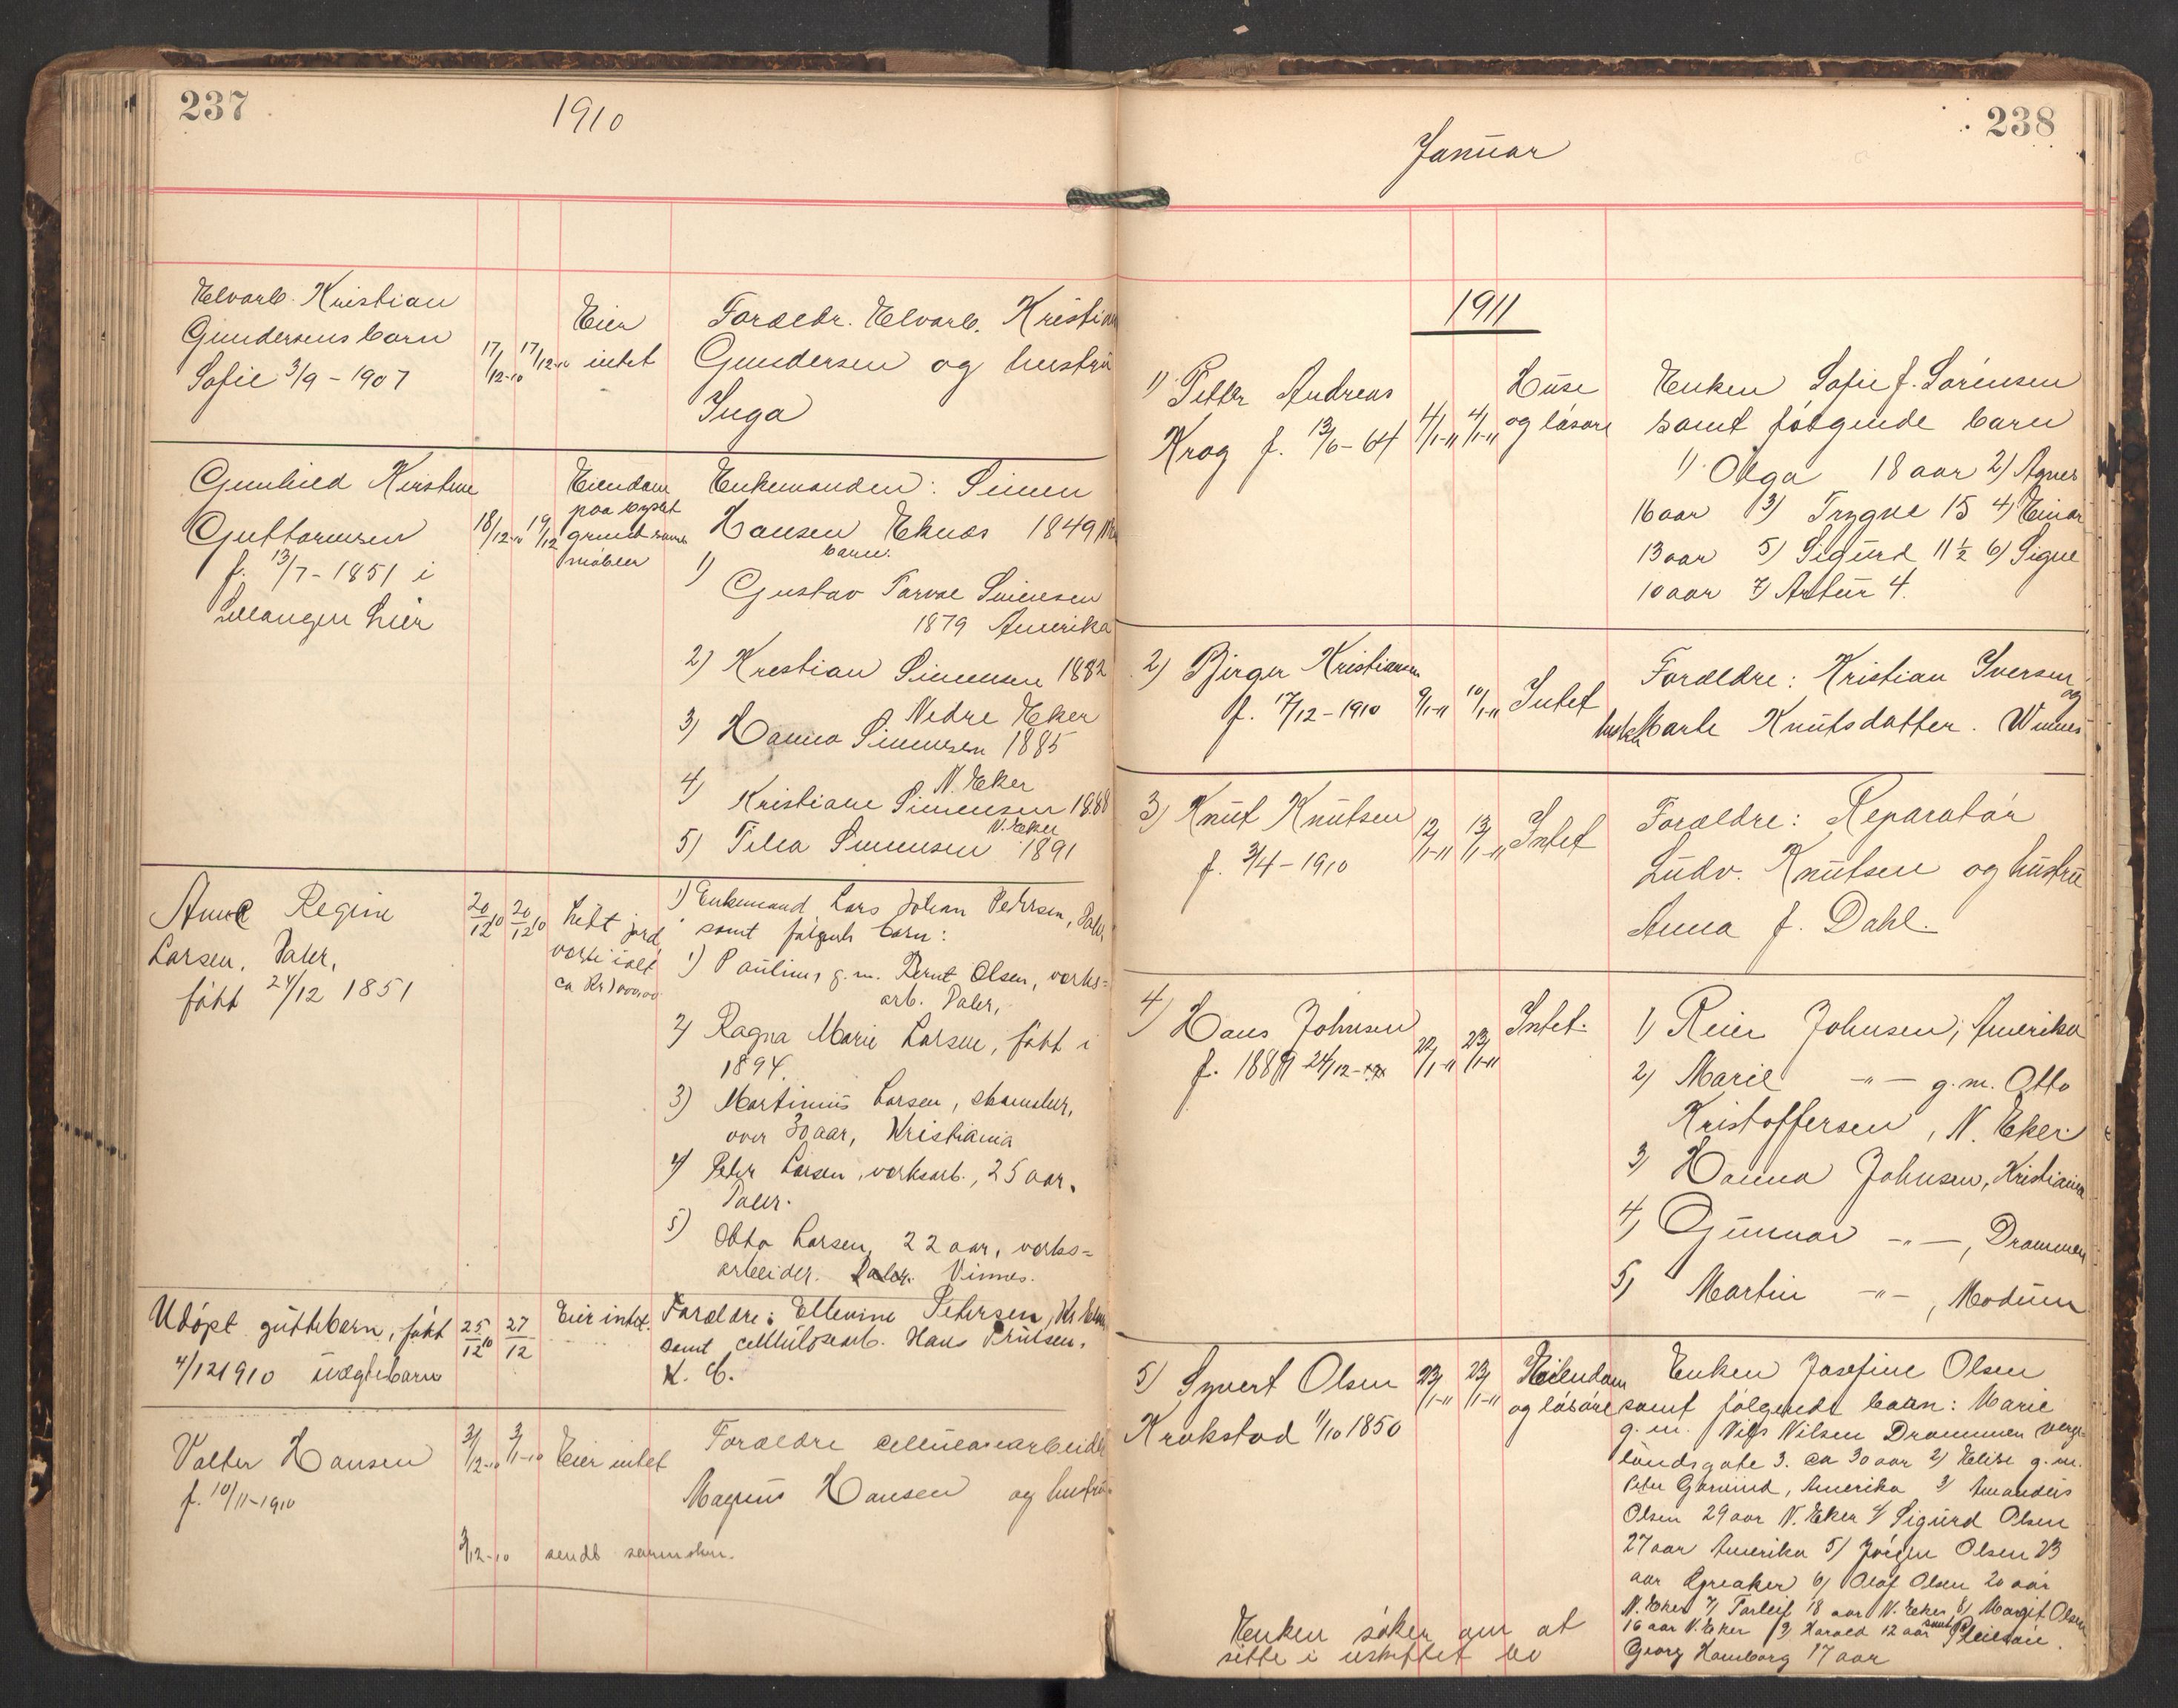 237
1910
Elvarb. Kristian
Gundersens barn
Sofie 3/9 - 1907
17/12-10
17/12-10
Eier
intet
Forældr. Elvarb. Kristian
Gundersen og hustru
Inga
Gunhild Kirstine
Guttormsen
f. 13/7 - 1851 i
Lier
18/12-10
19/12
Eiendom
paa bygslet
grund samt
møbler
Enkemanden: Simen
Hansen Eknes 1849
barn:
1)
Gustav Torval Simensen
1879 Amerika
2) Krestian Simensen 1882
Nedre Eker
3) Hanna Simensen 1885
N. Eker
4) Kristiane Simensen 1888
N. Eker
5) Tilla Simensen 1891
Anne Regine
Larsen, Daler,
født 24/12 1851
20/12 10
20/12 10
Lidt jord
værdi ialt
ca Kr 1000,00
1) Enkemand Lars Johan Pedersen, Daler,
samt følgende barn:
1) Pauline, g. m. Bernt Olsen, verks=
arb. Daler,
2) Ragna Marie Larsen, født i
1894.
3) Martinius Larsen, skomaker,
over 30 aar, Kristiania
4) Peter Larsen, verksarb., 25 aar,
Daler.
5)
Otto Larsen, 22 aar, verks=
arbeider. Daler. Vinnes.
Udøpt guttebarn, født
4/12 1910 uægtebarn
25/12 10
27/12
Eier intet.
Forældre: Ellevine Petersen,
samt cellulosearb. Hans Knutsen,
Valter Hansen
f. 10/11-1910
31/12-10
3/1-10
Eier intet
Forældre cellulosearbeider
Magnus Hansen og hustru
3/12-10 sendt sorenskr.
238
Januar
1911
1) Petter Andreas
Krog f. 13/6 - 64
4/1-11
4/1-11
Huse
og løsøre
Enken Sofie f. Sørensen
samt følgende barn
1) Olga 18 aar 2) Agnes
16 aar 3) Trygve 15 4) Einar
13 aar 5) Sigurd 11 ½ 6) Signe
10 aar 7) Artur 4.
2) Birger Kristiansen
f. 17/12 - 1910
9/1-11
10/1-11
Intet
Forældre: Kristian Iversen
og
hustru Marte Knutsdatter. Winnes
3) Knut Knutsen
f. 3/4 - 1910
12/1-11
13/1-11
Intet
Forældre: Reparatør
Ludv. Knutsen og hustru
Anna f. Dahl.
4) Hans Johnsen
f. 1889 24/12
22/1-11
23/1-11
Intet.
1) Reier Johnsen, Amerika
2) Marie -"- g. m. Otto
Kristoffersen, N. Eker
3) Hanna Johnsen, Kristiania
4) Gunnar -"-, Drammen
5) Martin -"-, Modum
5) Syvert Olsen
Krokstad 1/10 1850
23/1-11
23/1-11
Eiendom
og løsøre
Enken Josefine Olsen
samt følgende barn: Marie
g. m. Nils Nilsen Drammen
landsgate 3. ca 30 aar 2) Elise g. m.
Peter Garmind, Amerika 3) Amandus
Olsen 29 aar N. Eker 4) Sigurd Olsen
27 aar Amerika 5) Jørgen Olsen 23
aar Greaker 6) Olaf Olsen 20 aar
N. Eker 7) Torleif 18 aar N. Eker 8) Margit Olsen
16 aar N. Eker 9) Harald 12 aar samt Pleiesøn.
Georg Hamborg 17 aar
Enken søker om at
sitte i uskiftet bo